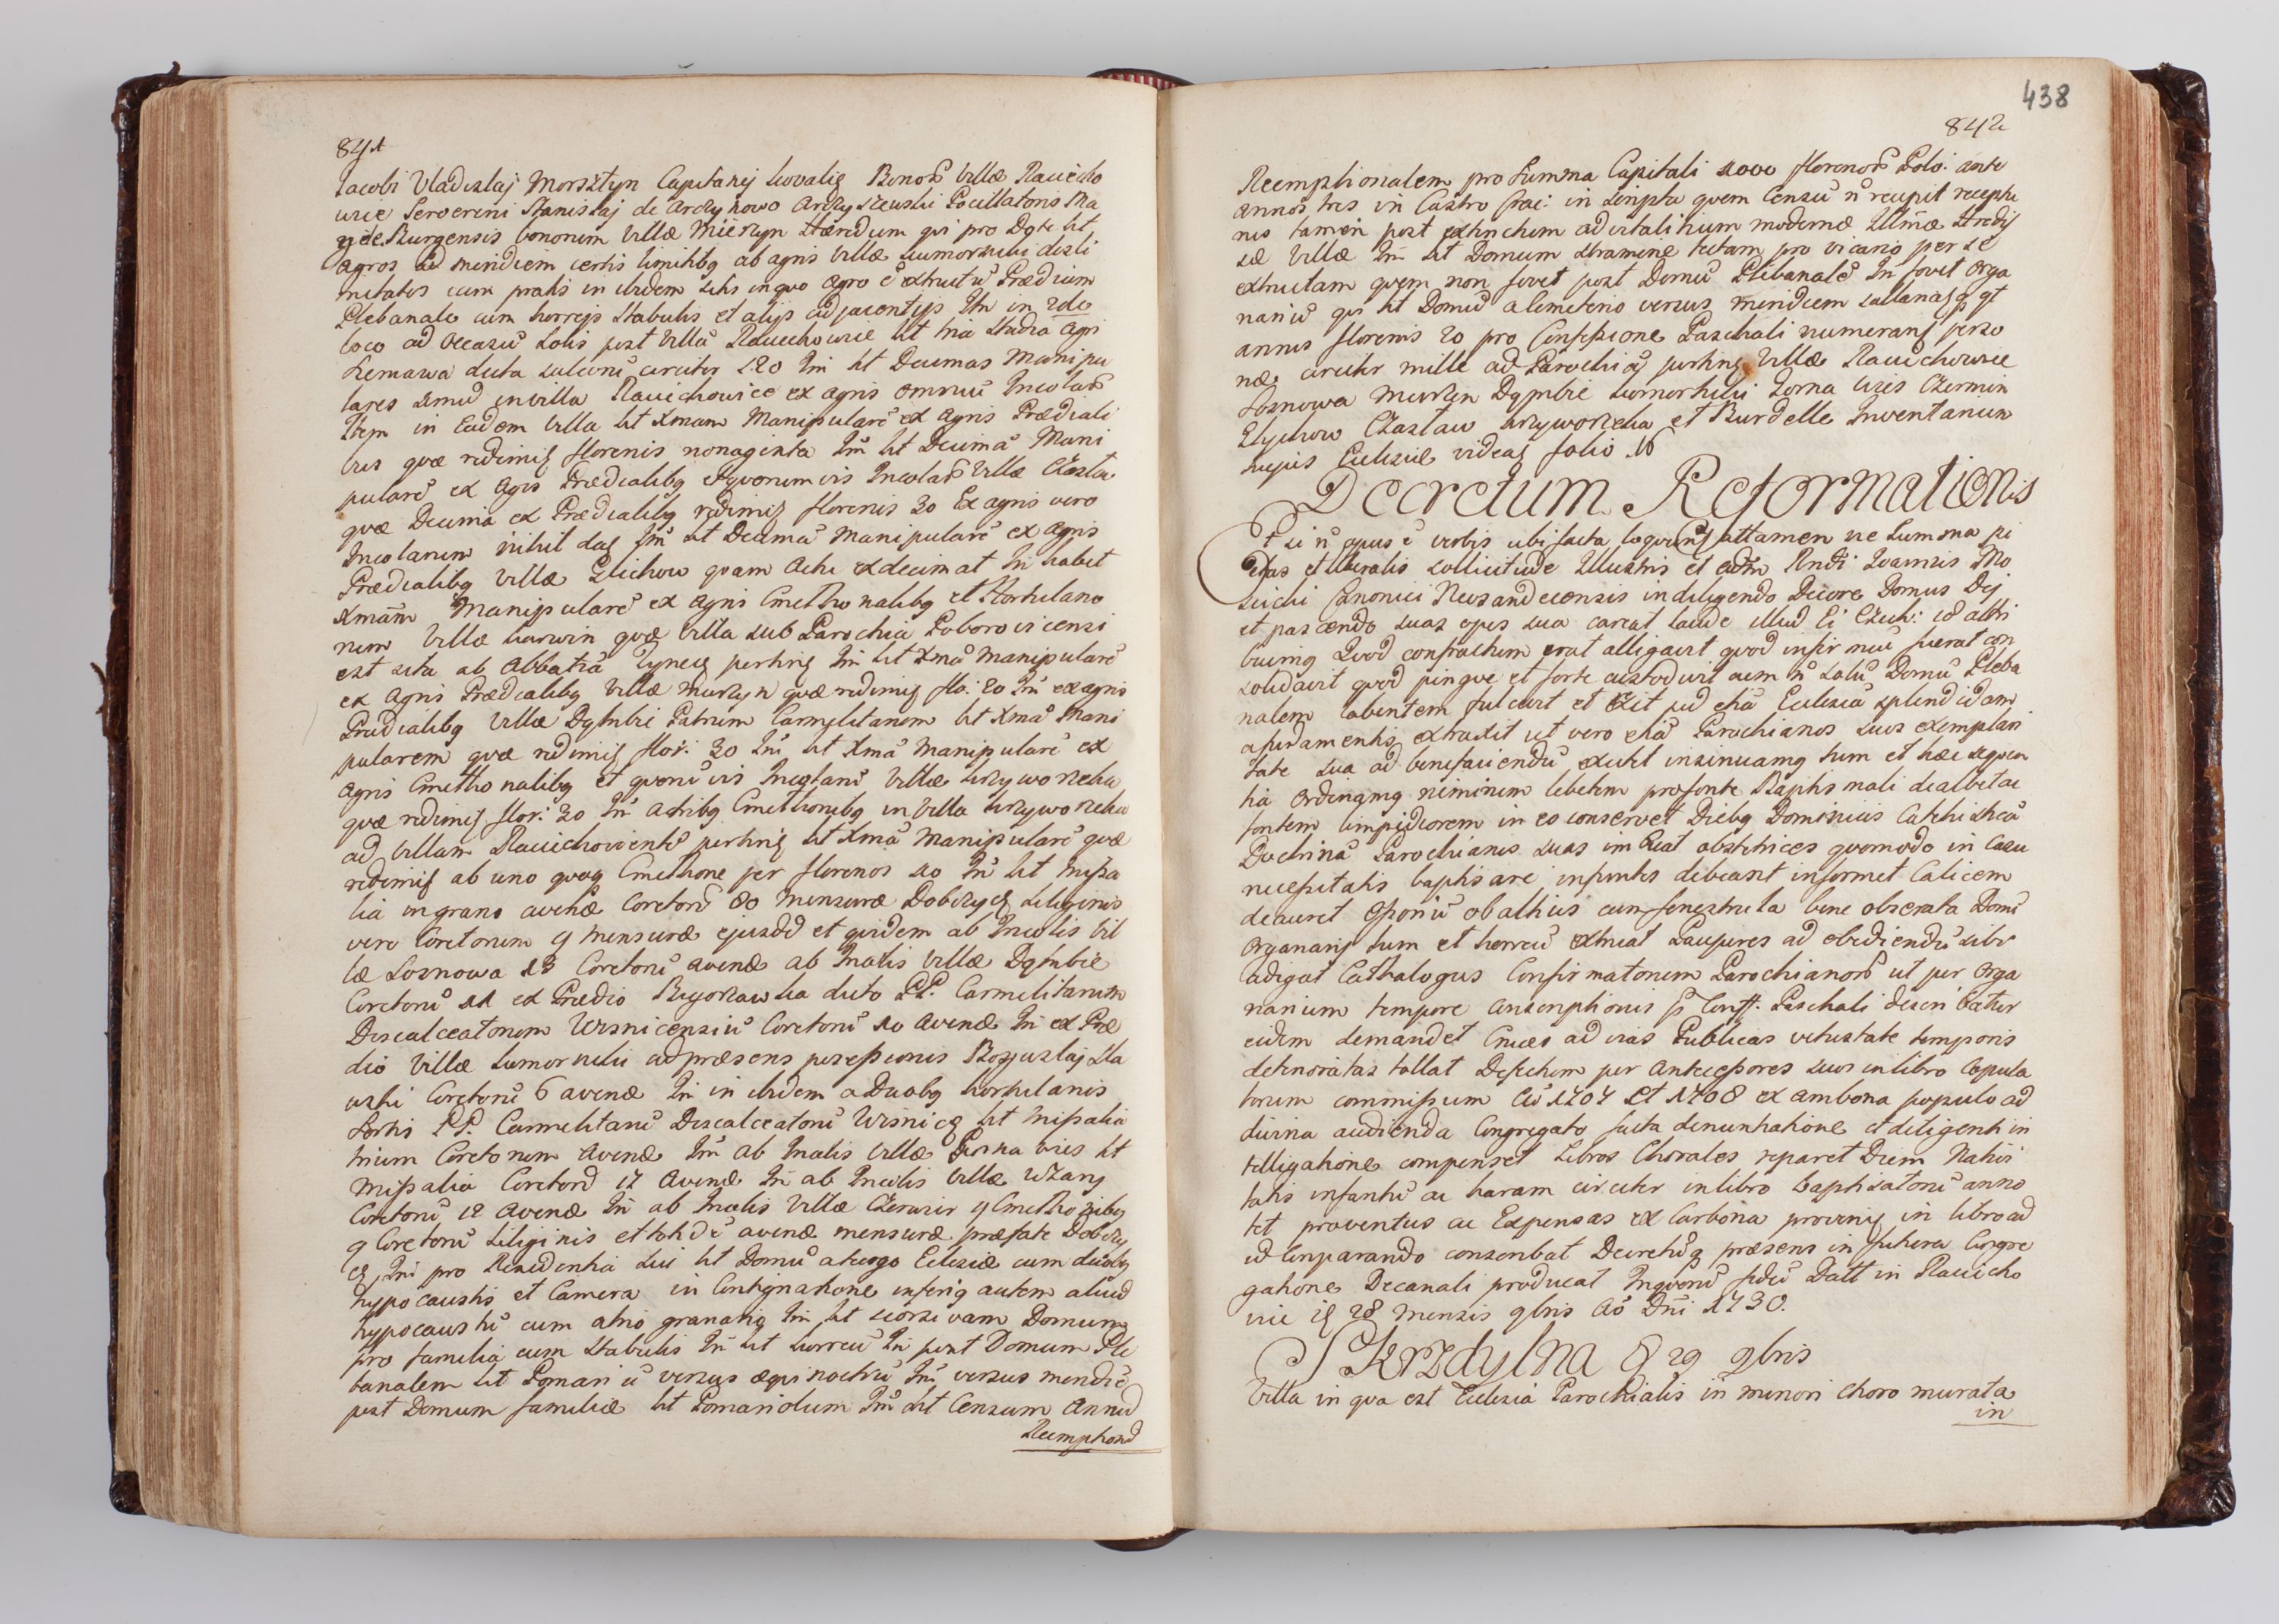 841
Iacobi Vladislaj Morsztyn Capitanej Kovalię Bonoꝝ Villæ Raciecho
wice Severini Stanislaj de Arczy Pocillatoris Ma
Burgensis bonorum Villæ Mierzyn Hæredum qui pro Dote ht
agros ad meridiem certis limitibꝗ ab agris Villæ Komorniki disti
nctatos cum pratis in ibidem sitis in quo agro ē extructū Prædium
Plebanale cum horreis Stabulis et alijs adjacentijs Itm in 2do
loco ad Occasū Solis post Villā Raciechowice ht tria Stadia agri
Lemawa dicta sulcorū circiter 120 Itm ht Decimas Manipu
lares simul in villa Raciechowice ex agris omniū Incolaꝝ
Item in Eadem Villa ht Xmam Manipularē ex agris Prædiali
bus quæ redimiꝭ florenis nonaginta Itm ht Decimā Mani
pularē ex Agris Prædialibꝗ et quorumvis Incolaꝝ Villæ Czasła
quæ Decima ex Prædialibꝗ redimiꝭ florenis 30 Ex agris vero
Incolarum nihil daꝭ Itm ht Decimā Manipularē ex agris
Prædialibꝗ Villæ Glichow quam Actu exdecimat Itm habet
Xmam Manipularē ex agris Cmethonalibꝗ et Hortulano
rum Villæ quæ Villa sub Parochia Poborovicensi
est sita ab Abbatia Tynecꝭ pertinꝭ Itm ht Xmā Manipularē
ex Agris Prædialibꝗ Villæ Mierzyn quæ redimiꝭ flo: 20 Itm ex agris
Prædialibꝗ Villæ Dąmbie Patrum Carmelitarum ht Xmā Mani
pularem quæ redimiꝭ flor: 30 Itm ht Xmā Manipularē ex
Agris Cmethonalibꝗ et quorūvis Incolarū Villæ Krzyworzeka
quæ redimiꝭ flor: 30 Itm a tribꝗ Cmethonibꝗ in Villa Krzyworzeka
ad Villam Raciechovicensē pertinꝭ ht Xmā Manipularē quæ
redimiꝭ ab uno quoꝗ Cmethone per florenos 10 Itm ht Missa
lia in grano avenæ Coretorū 80 mensuræ Dobczycꝭ Siliginis
vero Coretorum 9 mensuræ ejusdē et quidem ab Incolis vil
læ Sosnowa 13 Coretorū avenæ ab Incolis Villæ Dąmbie
Coretorū 11 ex Prædio Bigorzawka dicto PP. Carmelitarum
Discalceatorum Wisnicensiū Coretorū 10 avenæ Itm ex Præ
dio Villæ Komorniki ad præsens possessionis Bogusłaj Sła
wski Coretorū 6 avenæ Itm in ibidem a Duobꝗ hortulanis
Sortis PP. Carmelitarū Discalceatorū Wisnicꝭ ht Missalia
trium Coretorum Avenæ Itm ab Incolis Villæ Gorna vies ht
Missalia Coretorū 17 Avenæ Itm ab Incolis Villæ
Coretorū 12 Avenæ Itm ab Incolis Villæ Czerwin 9 Cmethonibꝗ
9 Coretorū Siliginis et totidē avenæ mensuræ præfatæ Dobczy
cꝭ, Itm pro Residentia sui ht Domū a tergo Eclesiæ cum duobꝗ
hypocaustis et Camera in Contignatione inferiꝗ autem aliud
hypocaustū cum atrio granariꝗ Itm ht seorsivam Domum
pro familia cum Stabulis Itm ht horreū Itm post Domum Ple
banalem ht Pomariū versus æquinoctiū Itm versus meridiē
post Domum familiæ ht Pomariolum Itm ht Censum Annuū
Reemptionā
438
842
Reemptionalem pro Summa Capitali 1000 florenoꝝ Polo: ante
annos tres in Castro Crac: inscripta quem Censū ñ recepit receptu
rus tamen post extinctum advitalitium modernæ Illmæ Hæredis
sæ Villæ Itm ht Domum stramine tectam pro vicario per se
extructam quem non fovet post Domū Plebanalē Itm fovet Orga
nariū qui ht Domū a Cemeterio versus meridiem
annis florenis 20 pro Confessione Paschali numeranꝭ perso
næ circiter mille ad Parochiā pertinꝭ Villæ Raciechowice
Sosnowa Mierzen Dąmbie Komorniki Gorna wies Czermin
Glychow Czasław Krzyworzeka et Burdelle Inventarium
hujus Eclesiæ videaꝭ folio 16
Decretum Reformationis
Etsi ñ opus ē verbis ubi facta loqvunꝭ attamen ne Summa pi
etas et liberalis sollicitudo Illustris et adm Rndi Ioannis Mo
Canonici Neosandecensis in diligendo Decore Domus Dej
et pascendo suas oves sua careat laude illud Ei Ezech: 18 attri
buimꝗ Quod confractum erat alligavit quod infirmū fuerat con
solidavit quod pingue et forte custodivit cum ñ Solū Domū Pleba
nalem labentem fulcivit et sed etiā Eclesiā splendidam
a fundamentis extruxit ut vero etiā Parochianos suos exemplari
tate sua ad benefaciendū excitet insinuamꝗ tum et hæc sequen
tia Ordinamꝗ nimirum lebetem pro fonte Baptismali dealbet ac
fontem limpidiorem in eo conservet Diebꝗ Dominicis Catechisticā
Doctrinā Parochianis suis imbuat obstetrices quomodo in Casu
necessitatis baptisare infantes debeant informet Calicem
deauret Ostiariū ob altius cum fenestrula bene obserata Domū
Organarij tum et horreū extruat Paupures ad obediendū sibi
adigat Cathalogus Confirmatorum Parochianoꝝ ut per Orga
narium tempore Conscriptionis pro Conff. Paschali describatur
eidem demandet Cruces ad vias Publicas vetustate temporis
deterioratas tollat Defectum per Antecessores suos in libro Copula
torum commissum Aō 1707 et 1708 ex ambona populo ad
divina audienda Congregato facta denuntiatione et diligenti in
telligatione compenset Libros Chorales reparet Diem Nativi
tatis infantū ac horam circiter in libro baptisatorū anno
tet proventus ac Expensas ex Carbona provenꝭ in libro ad
id Comparando conscribat Decretūꝗ præsens in futura Congre
gatione Decanali producat Inquorū fidē Datt in Raciecho
vicijs 28 Mensis 9bris Aō Dni 1730.
Skrzdylna 29 9bris
Villa in qua est Eclesia Parochialis in minori choro murata
in